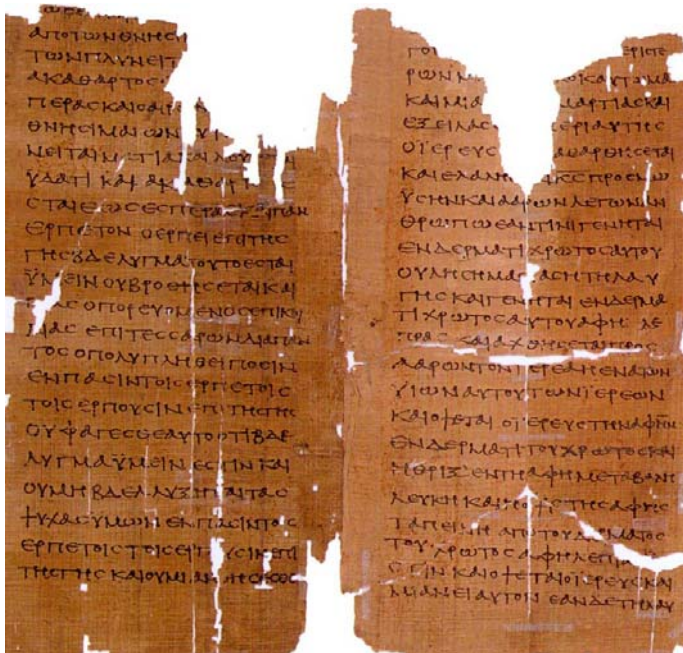 ΑΠΟΤΩΝΘΝΗϹΙ
ΤΩΝΠΛΥΝΕΙΤ
ΑΚΑΘΑΡΤΟϹ
ΠΕΡΑϹΚΑΙΟΑΙΡ
ΘΝΗϹΙΜΑΙΩΝ
ΝΕΙΤΑΙΜΑΤΙΑΚΑΙΛΟΥ
ΫΔΑΤΙΚΑΙΑΚΑΘΑΡΤΟϹ
ϹΤΑΙΕΩϹΕϹΠΕΡΑϹΚΑΙΠΑΝ
ΕΡΠΕΤΟΝΟΕΡΠΕΙΕΠΙΤΗϹ
ΓΗϹΒΔΕΛΥΓΜΑΤΟΥΤΟΕϹΤΑΙ
ΫΜΕΙΝΟΥΒΡΩΘΗϹΕΤΑΙΚΑΙ
ΑϹΟΠΟΡΕΥΟΜΕΝΟϹΕΠΙΚΟΙ
ΛΙΑϹΕΠΙΤΕϹϹΑΡΩΝΔΙΑΠΑΝ
ΤΟϹΟΠΟΛΥΠΛΗΘΕΙΠΟϹΙΝ
ΕΝΠΑϹΙΝΤΟΙϹΕΡΠΕΤΟΙϹ
ΤΟΙϹΕΡΠΟΥϹΙΝΕΠΙΤΗϹΓΗϹ
ΟΥΦΑΓΕϹΘΕΑΥΤΟΟΤΙΒΔΕ
ΛΥΓΜΑΫΜΕΙΝΕϹΤΙΝΚΑΙ
ΟΥΜΗΒΔΕΛΛΥΞΗΤΑΙΤΑϹ
ΨΥΧΑϹΥΜΩΝΕΝΠΑϹΙΝΤΟΙϹ
ΕΡΠΕΤΟΙϹΤΟΙϹΕΡΠΟΥϹΙΝΕΠΙ
ΤΗϹΓΗϹΚΑΙΟΥΜΙΑΝΘΗϹΕϹΘΕ
ΓΟΝ ΕΡΙϹΤΕ
ΡΩΝ ΚΑΥΤΩΜΑ
ΚΑΙΜΙΑ ΜΑΡΤΙΑϹΚΑΙ
ΕΞΕΙΛΑϹ ΕΡΙΑΥΤΗϹ
ΟΪΕΡΕΥϹ ΑΘΑΡΘΗϹΕΤΑΙ
ΚΑΙΕΛΑΛΗ ΚϹΠΡΟϹΜΩ
ΫϹΗΝΚΑΙΑΑΡΩΝΛΕΓΩΝΑΝ
ΘΡΩΠΩΕΑΝΤΙΝΙΓΕΝΗΤΑΙ
ΕΝΔΕΡΜΑΤΙΧΡΩΤΟϹΑΥΤΟΥ
ΟΥΛΗϹΗΜΑϹΙΑϹΗΤΗΛΑΥ
ΓΗϹΚΑΙΓΕΝΗΤΑΙΕΝΔΕΡΜΑ
ΤΙΧΡΩΤΟϹΑΥΤΟΥΑΦΗΛΕ
ΠΡΑϹΚΑΙΑΧΘΗϹΕΤΑΙΠΡΟϹ
ΑΑΡΩΝΤΟΝΪΕΡΕΑΗΕΝΑΤΩΝ
ΥΙΩΝΑΥΤΟΥΤΩΝΪΕΡΕΩΝ
ΚΑΙΟΨΕΤΑΙΟΪΕΡΕΥϹΤΗΝΑΦΗΝ
ΕΝΔΕΡΜΑΤΙΤΟΥΧΡΩΤΟϹΚΑΙ
ΗΘΡΙΞΕΝΤΗΑΦΗΜΕΤΑΒΑΛΗ
ΛΕΥΚΗΚΑΙΗΟΨΙϹΤΗϹΑΦΗϹ
ΤΑΠΕΙΝΗΑΠΟΤΟΥΔΕΡΜΑΤΟϹ
ΤΟΥΧΡΩΤΟϹΑΦΗΛΕΠΡΑϹΕ
ϹΤΙΝΚΑΙΟΨΕΤΑΙΟΪΕΡΕΥϹΚΑΙ
ΜΙΑΝΕΙΑΥΤΟΝΕΑΝΔΕΤΗΛΑΥ